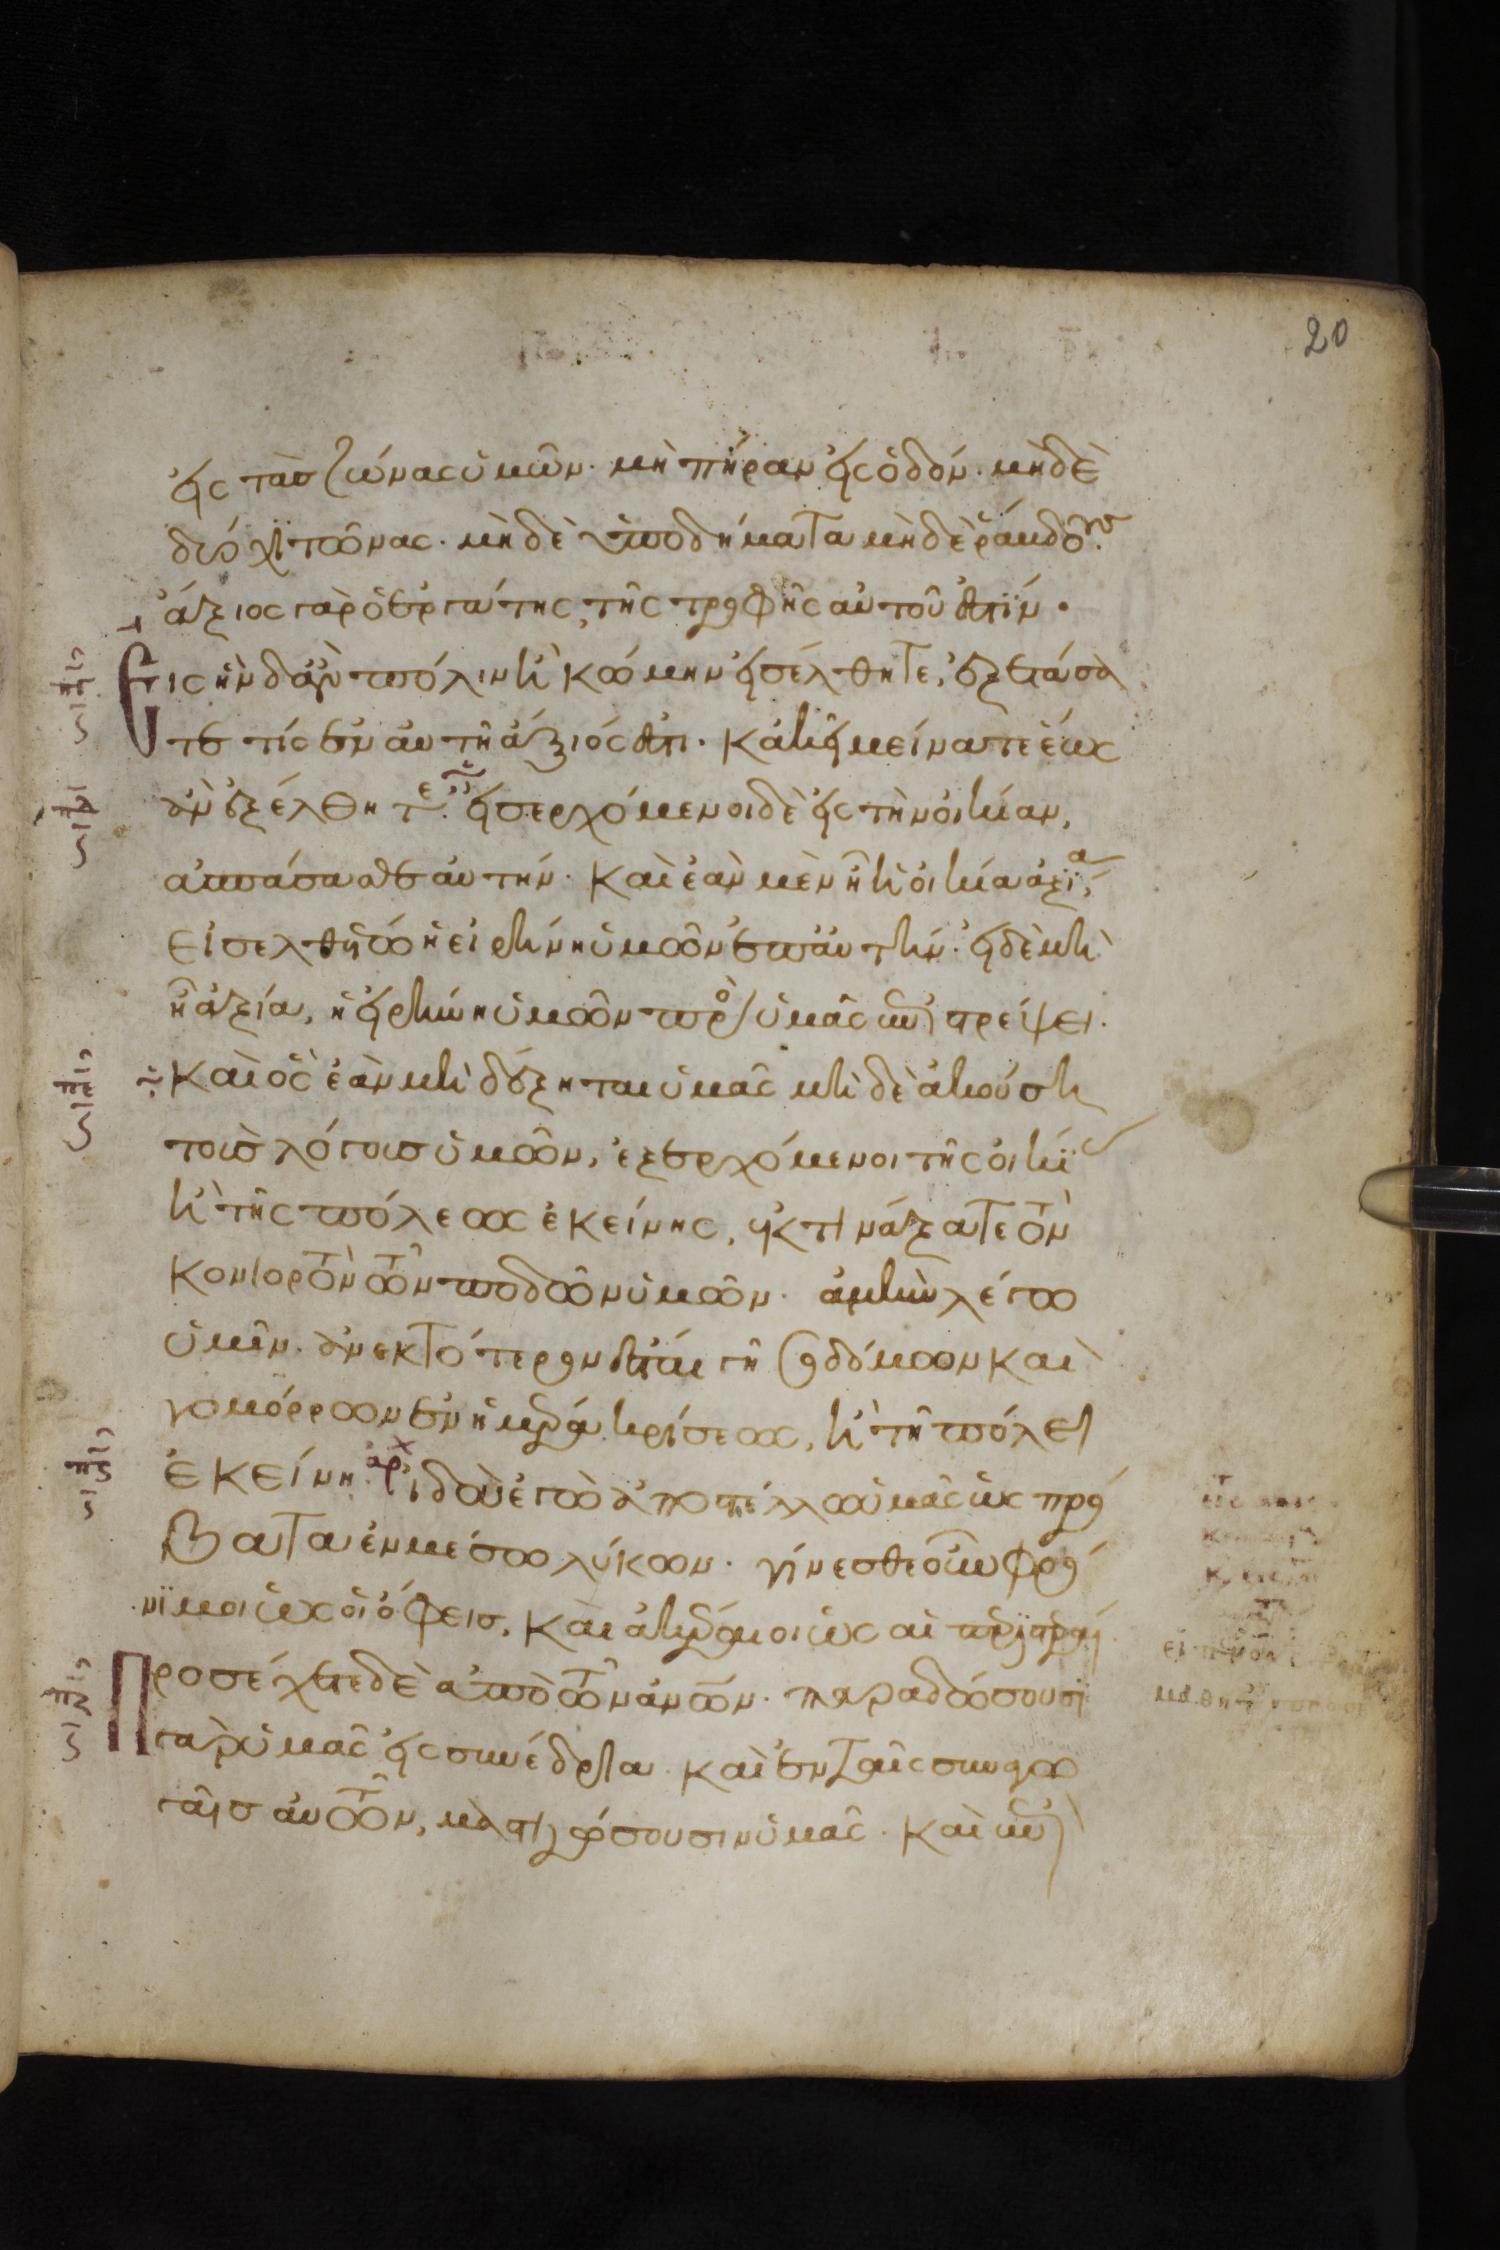 20
εἰς τὰσ ζώνας ὑμῶν· μὴ πήραν εἰς ὁδόν· μηδὲ
δύο χϊτῶνας· μηδὲ ὑποδήματα μηδὲ ῥάβδους·
ἄξιος γὰρ ὁ ἐργάτης, τῆς τροφῆς αὐτοῦ ἐστϊν·
Εἰς ἣν δ' ἂν πόλιν ἢ κώμην εἰσέλθητε, ἐξετάσα
τε τίς ἐν αὐτῆ ἄξιός ἐστι· κἀκεῖ μείνατε ἕως
ἂν ἐξέλθητε· εἰσερχόμενοι δὲ εἰς τὴν οἰκίαν,
ἀσπάσασθε αὐτήν· καὶ ἐὰν μὲν ῆ ἡ οἰκία ἀξία,
εἰσελθέτω ἡ εἰρήνη ὑμῶν ἐπ' αὐτήν· εἰ δὲ μὴ
ῆ ἀξία, ἡ εἰρήνη ὑμῶν πρὸς ὑμᾶς ἐπιστρεψει·
Καὶ ὃς ἐὰν μὴ δέξηται ὑμᾶς μηδὲ ἀκούση
τοὺσ λόγουσ ὑμῶν, ἐξερχόμενοι τῆς οἰκίας
ἢ τῆς πόλεως ἐκείνης, ἐκτινάξατε τὸν
κονιορτὸν τῶν ποδῶν ὑμῶν· ἀμὴν λέγω
ὑμῖν· ἀνεκτότερον ἔσται γῆ σοδόμων καὶ
γομόρρων ἐν ἡμέρα κρίσεως, ἢ τῆ πόλει
ἐκείνη· ἀρχ ἰδοὺ ἐγὼ ἀποστέλλω ὑμᾶς ὡς πρό
βατα ἐν μέσω λύκων· γίνεσθε οὖν φρό
νϊμοι ὡς οἱ ὄφεισ, καὶ ἀκέραιοι ὡς αἱ περιστεραί·
Προσέχετε δὲ ἀπὸ τῶν ἀνων· παραδώσουσϊ
γὰρ ὑμᾶς εἰς συνέδρια· καὶ ἐν ταῖς συναγω
γαῖσ αὐτῶν, μαστιγώσουσιν ὑμᾶς· καὶ ἐπὶ